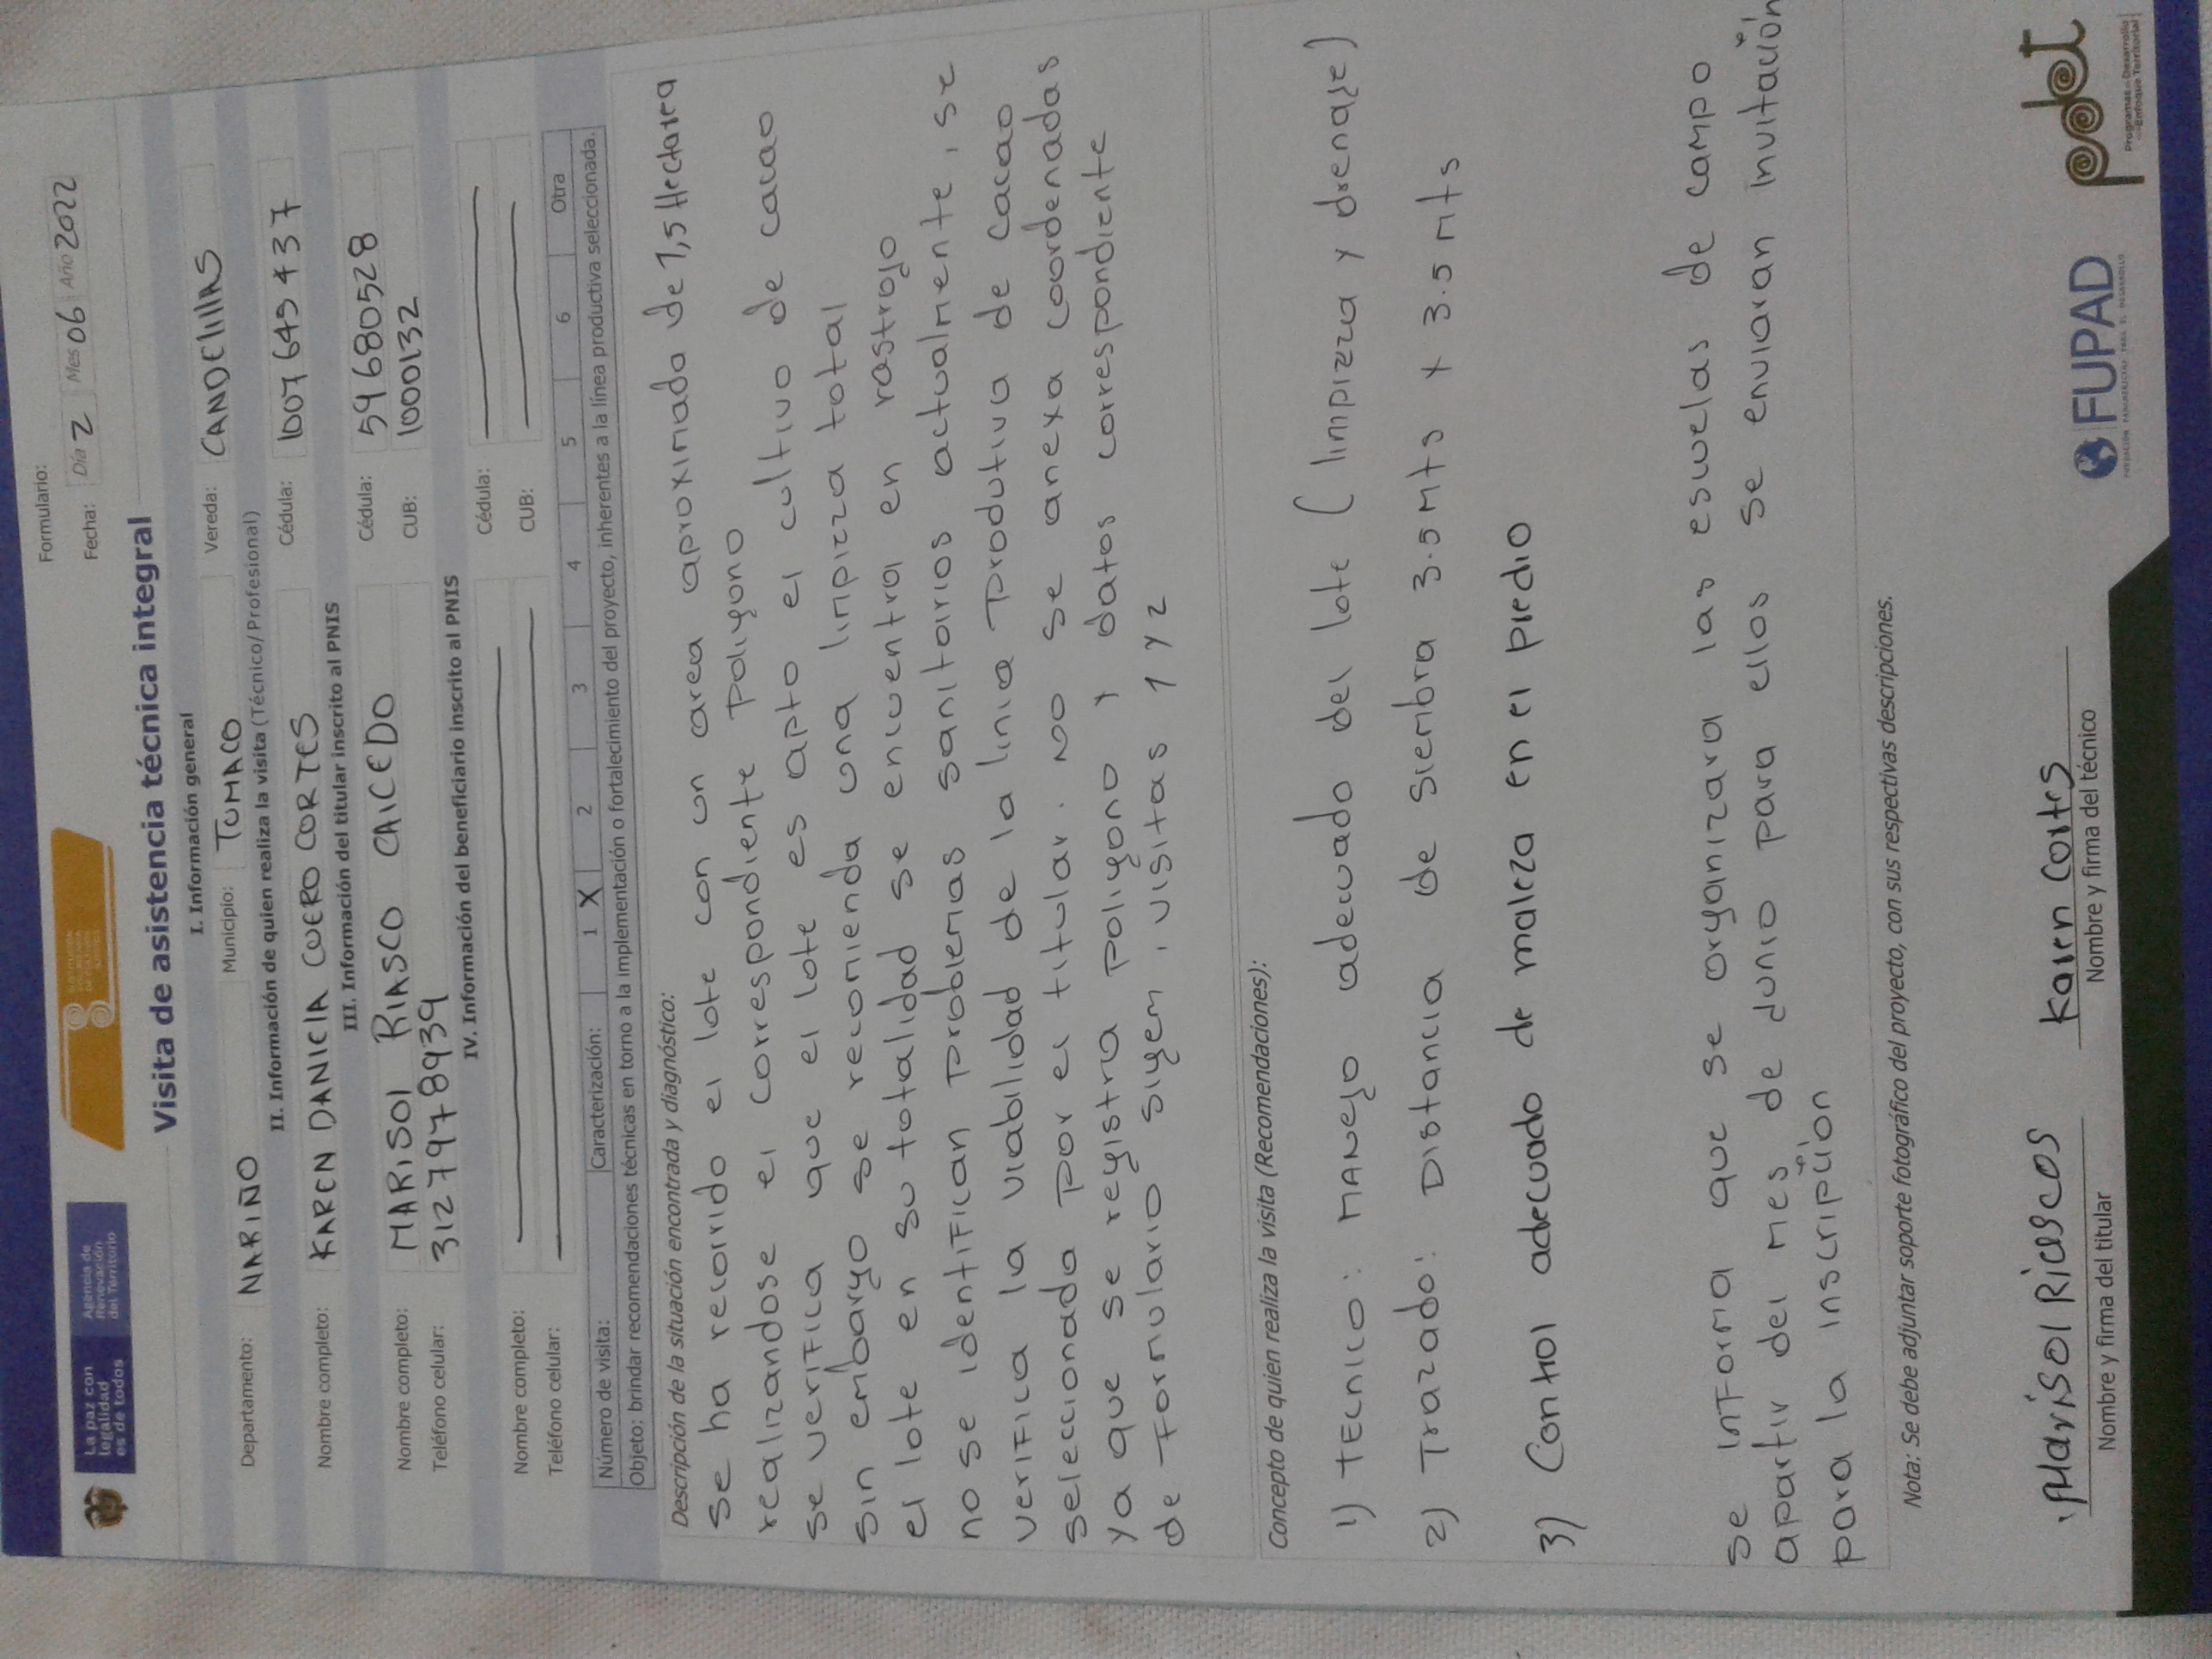 La paz con
legalidad
es de todos
Agencia de
Renovación
del Territorio
Formulario:
Fecha: Día 2 Mes 06 Año 2022
Visita de asistencia técnica integral
I. Información general
Departamento: NARIÑO Municipio: TUMACO Vereda: CANDElillAS
II. Información de quien realiza la visita (Técnico/Profesional)
Nombre completo: KAREN DANIElA CUERO CORTES Cédula:
III. Información del titular inscrito al PNIS
Nombre completo: MARISOl RIASCO CAICEDO Cédula: 59680528
Teléfono celular: 3127978939 CUB: 1000132
IV. Información del beneficiario inscrito al PNIS
Nombre completo: Cédula:
Teléfono celular: CUB:
Número de visita: Caracterización: 1 X 2 3 4 5 6 Otra
Objeto: brindar recomendaciones técnicas en torno a la implementación o fortalecimiento del proyecto, inherentes a la línea productiva seleccionada.
Descripción de la situación encontrada y diagnóstico:
se ha recorrido el lote con un area aproximado de 1,5 Hectarea
realizandose el correspondiente poligono
se verifica que el lote es apto el cultivo de cacao
sin embargo se recomienda una limpieza total
el lote en su totalidad se encuentra en rastrojo
no se identifican problemas sanitoirios actualmente, se
verifica la viabilidad de la linia productiva de cacao
seleccionada por el titular. No se anexa coordenadas
ya que se registra poligono y datos correspondiente
de formulario sigem, visitas 1 y 2
Concepto de quien realiza la visita (Recomendaciones):
1) Tecnico: Manejo adecuado del lote (limpieza y drenaje)
2) Trazado: Distancia de siembra 3.5 mts x 3.5 mts
3) Control adecuado de maleza en el predio
se informa que se organizara las escuelas de campo
apartir del mes de Junio para ellos se enviaran invitación
para la inscripción
Nota: Se debe adjuntar soporte fotográfico del proyecto, con sus respectivas descripciones.
Marisol Riascos Karen Cortes
Nombre y firma del titular Nombre y firma del técnico
FUPAD
FUNDACIÓN PANAMERICANA PARA EL DESARROLLO
pdet
Programas de Desarrollo
con Enfoque Territorial